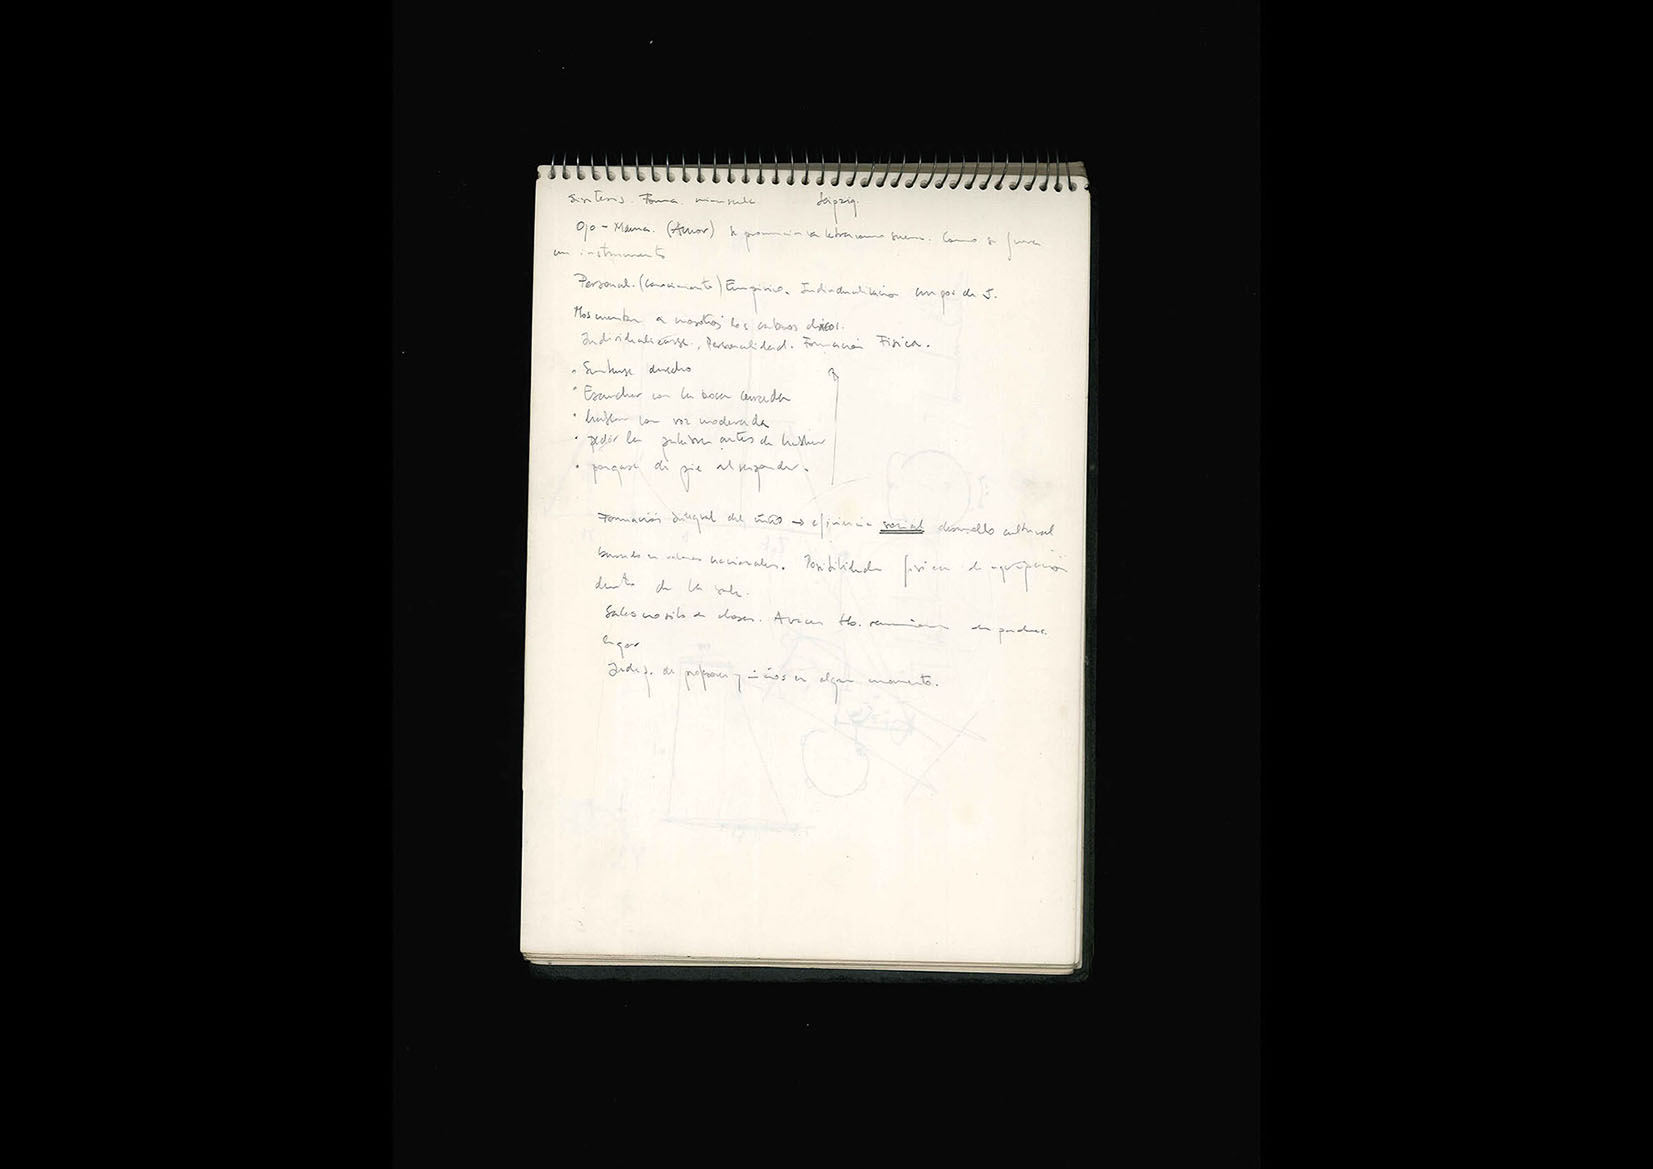 Sintesis. Forma. minuscula Leipzig.
Ojo - Mama. (Amor) se pronuncia la letra como suena. Como si fuera
un instrumento
Personal. (conocimiento) Empirico. Individualizacion grupos de 5.
a nosotros los
Individualizarse, Personalidad. Formación Fisica.
• Sentarse derecho
• Escuchar con la boca cerrada
• hablar con voz moderada
• pedir la palabra antes de hablar
• pongase de pie al responder.
Formación integral del niño → eficiencia social desarrollo cultural
basado en valores nacionales. Posibilidad fisica de agrupación
dentro de la sala.
en clases.
de profesores y niños en algun momento.